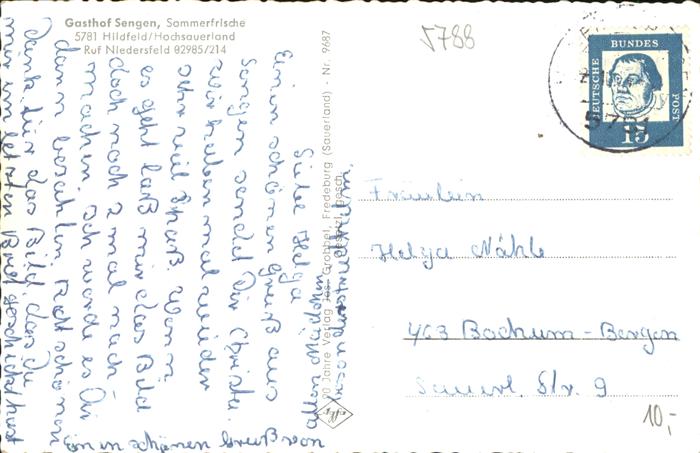 Gasthof Sengen, Sommerfrische
5781 Hildfeld/Hochsauerland
Ruf Niedersfeld 02985/214
5788
DEUTSCHE BUNDES POST
15
5781
Liebe Helga
Einen schönen Gruß aus
Sengen sendet Dir Christa.
Wir haben mal wieder
sehr viel Spaß. Wenn
es geht laß mir das Bild
doch noch 2 mal nach
machen. Ich werde es Dir
dann bezahlen. Recht schönen
Dank für das Bild, das Du
mir im letzten Brief geschickt hast
Einen schönen Gruß von
Mädchen
besonders
70 Jahre Verlag Jos. Grobbel, Fredeburg (Sauerland) - Nr. 9687
gesetzl. gesch.
Fräulein
Helga Nähle
463 Bochum-Bergen
Sauerl. Str. 9
10,-